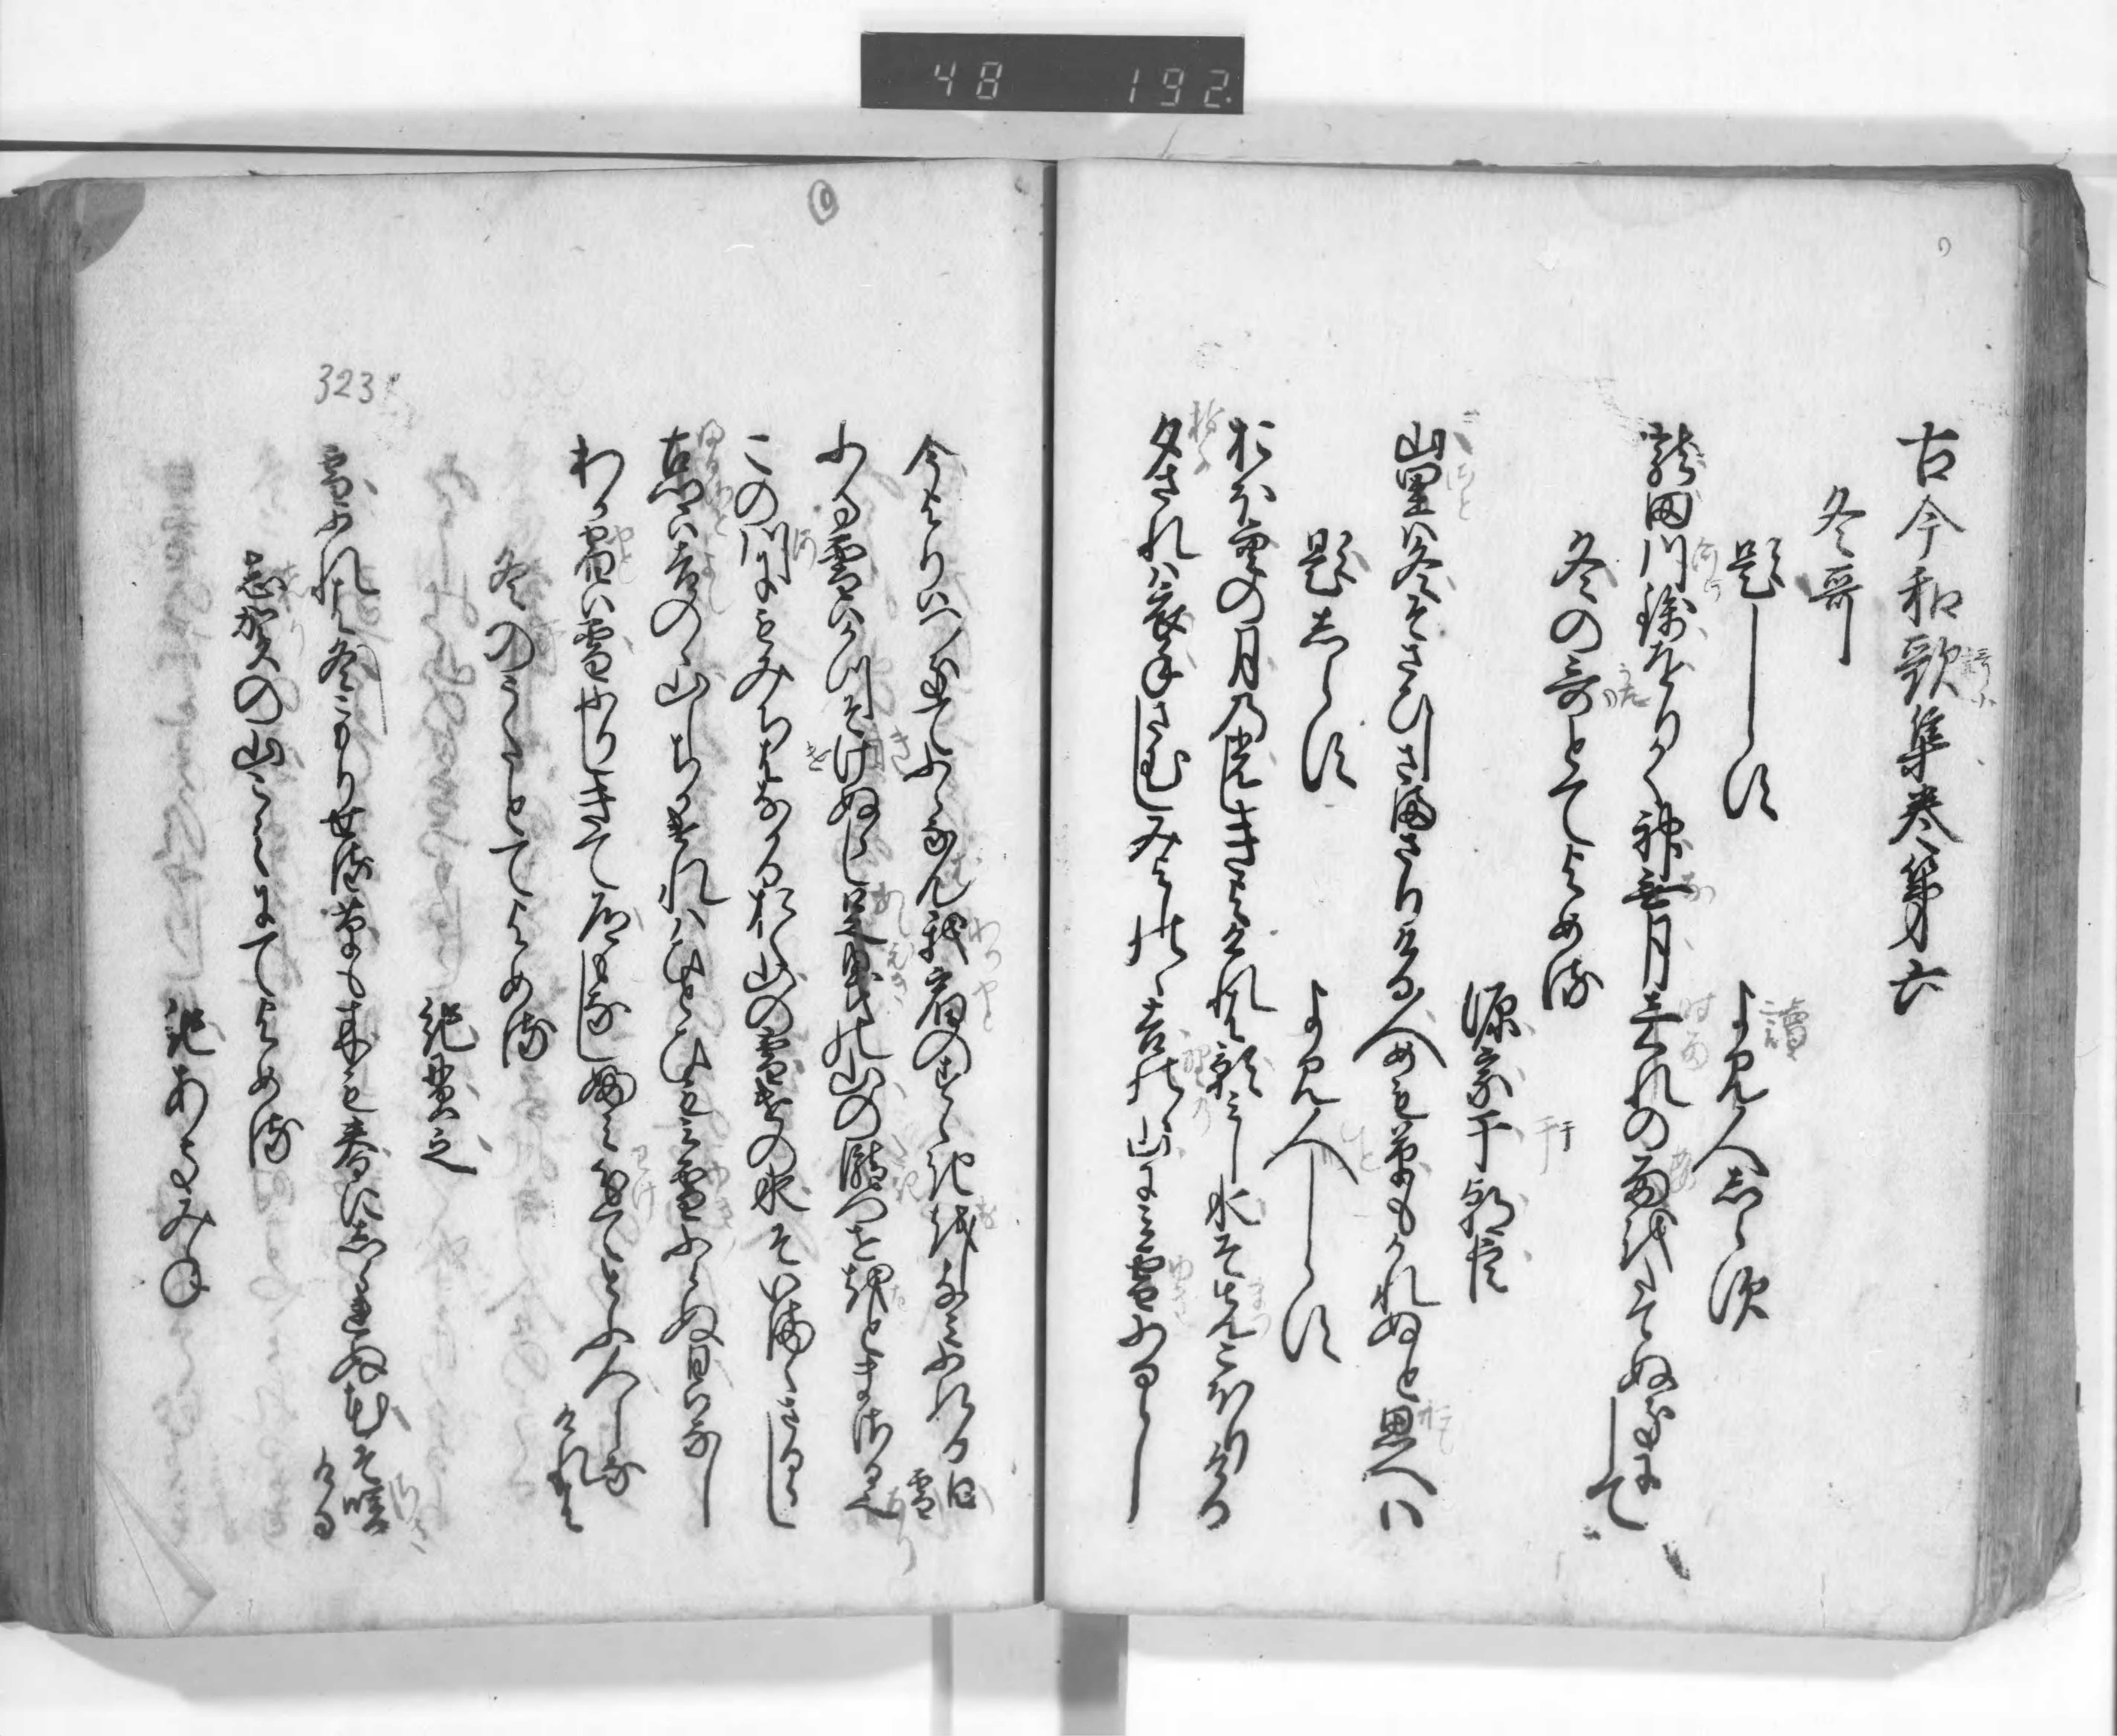 48 192
古今和歌集巻第六
冬哥
題しらす
よみ人しらす
龍田川錦をりかく神無月しくれの雨をたてぬきにして
冬の哥とてよめる
源宗于朝臣
山里は冬そさひしさまさりける人めも草もかれぬと思へは
題しらす
よみ人しらす
おほ空の月の光しきよけれは影みし水そまつこほりける
夕されは衣手さむしみよしのゝ吉野の山にみ雪ふるらし
今よりはつきてふらなん我宿のすゝきをしなみふれる白雪
ふる雪はかつそけぬらし足引の山の瀧つせ音まさるなり
この川にもみちはなかる おく山の雪けの水そいままさるらし
古郷は吉野の山しちかけれはひとひもみ雪ふらぬ日はなし
わか宿は雪ふりしきて道もなしふみわけてとふ人しなけれは
冬のうたとてよめる
紀貫之
323
雪ふれは冬こもりせる草も木も春にしられぬ花そ咲ける
志賀の山こえにてよめる
紀あきみね